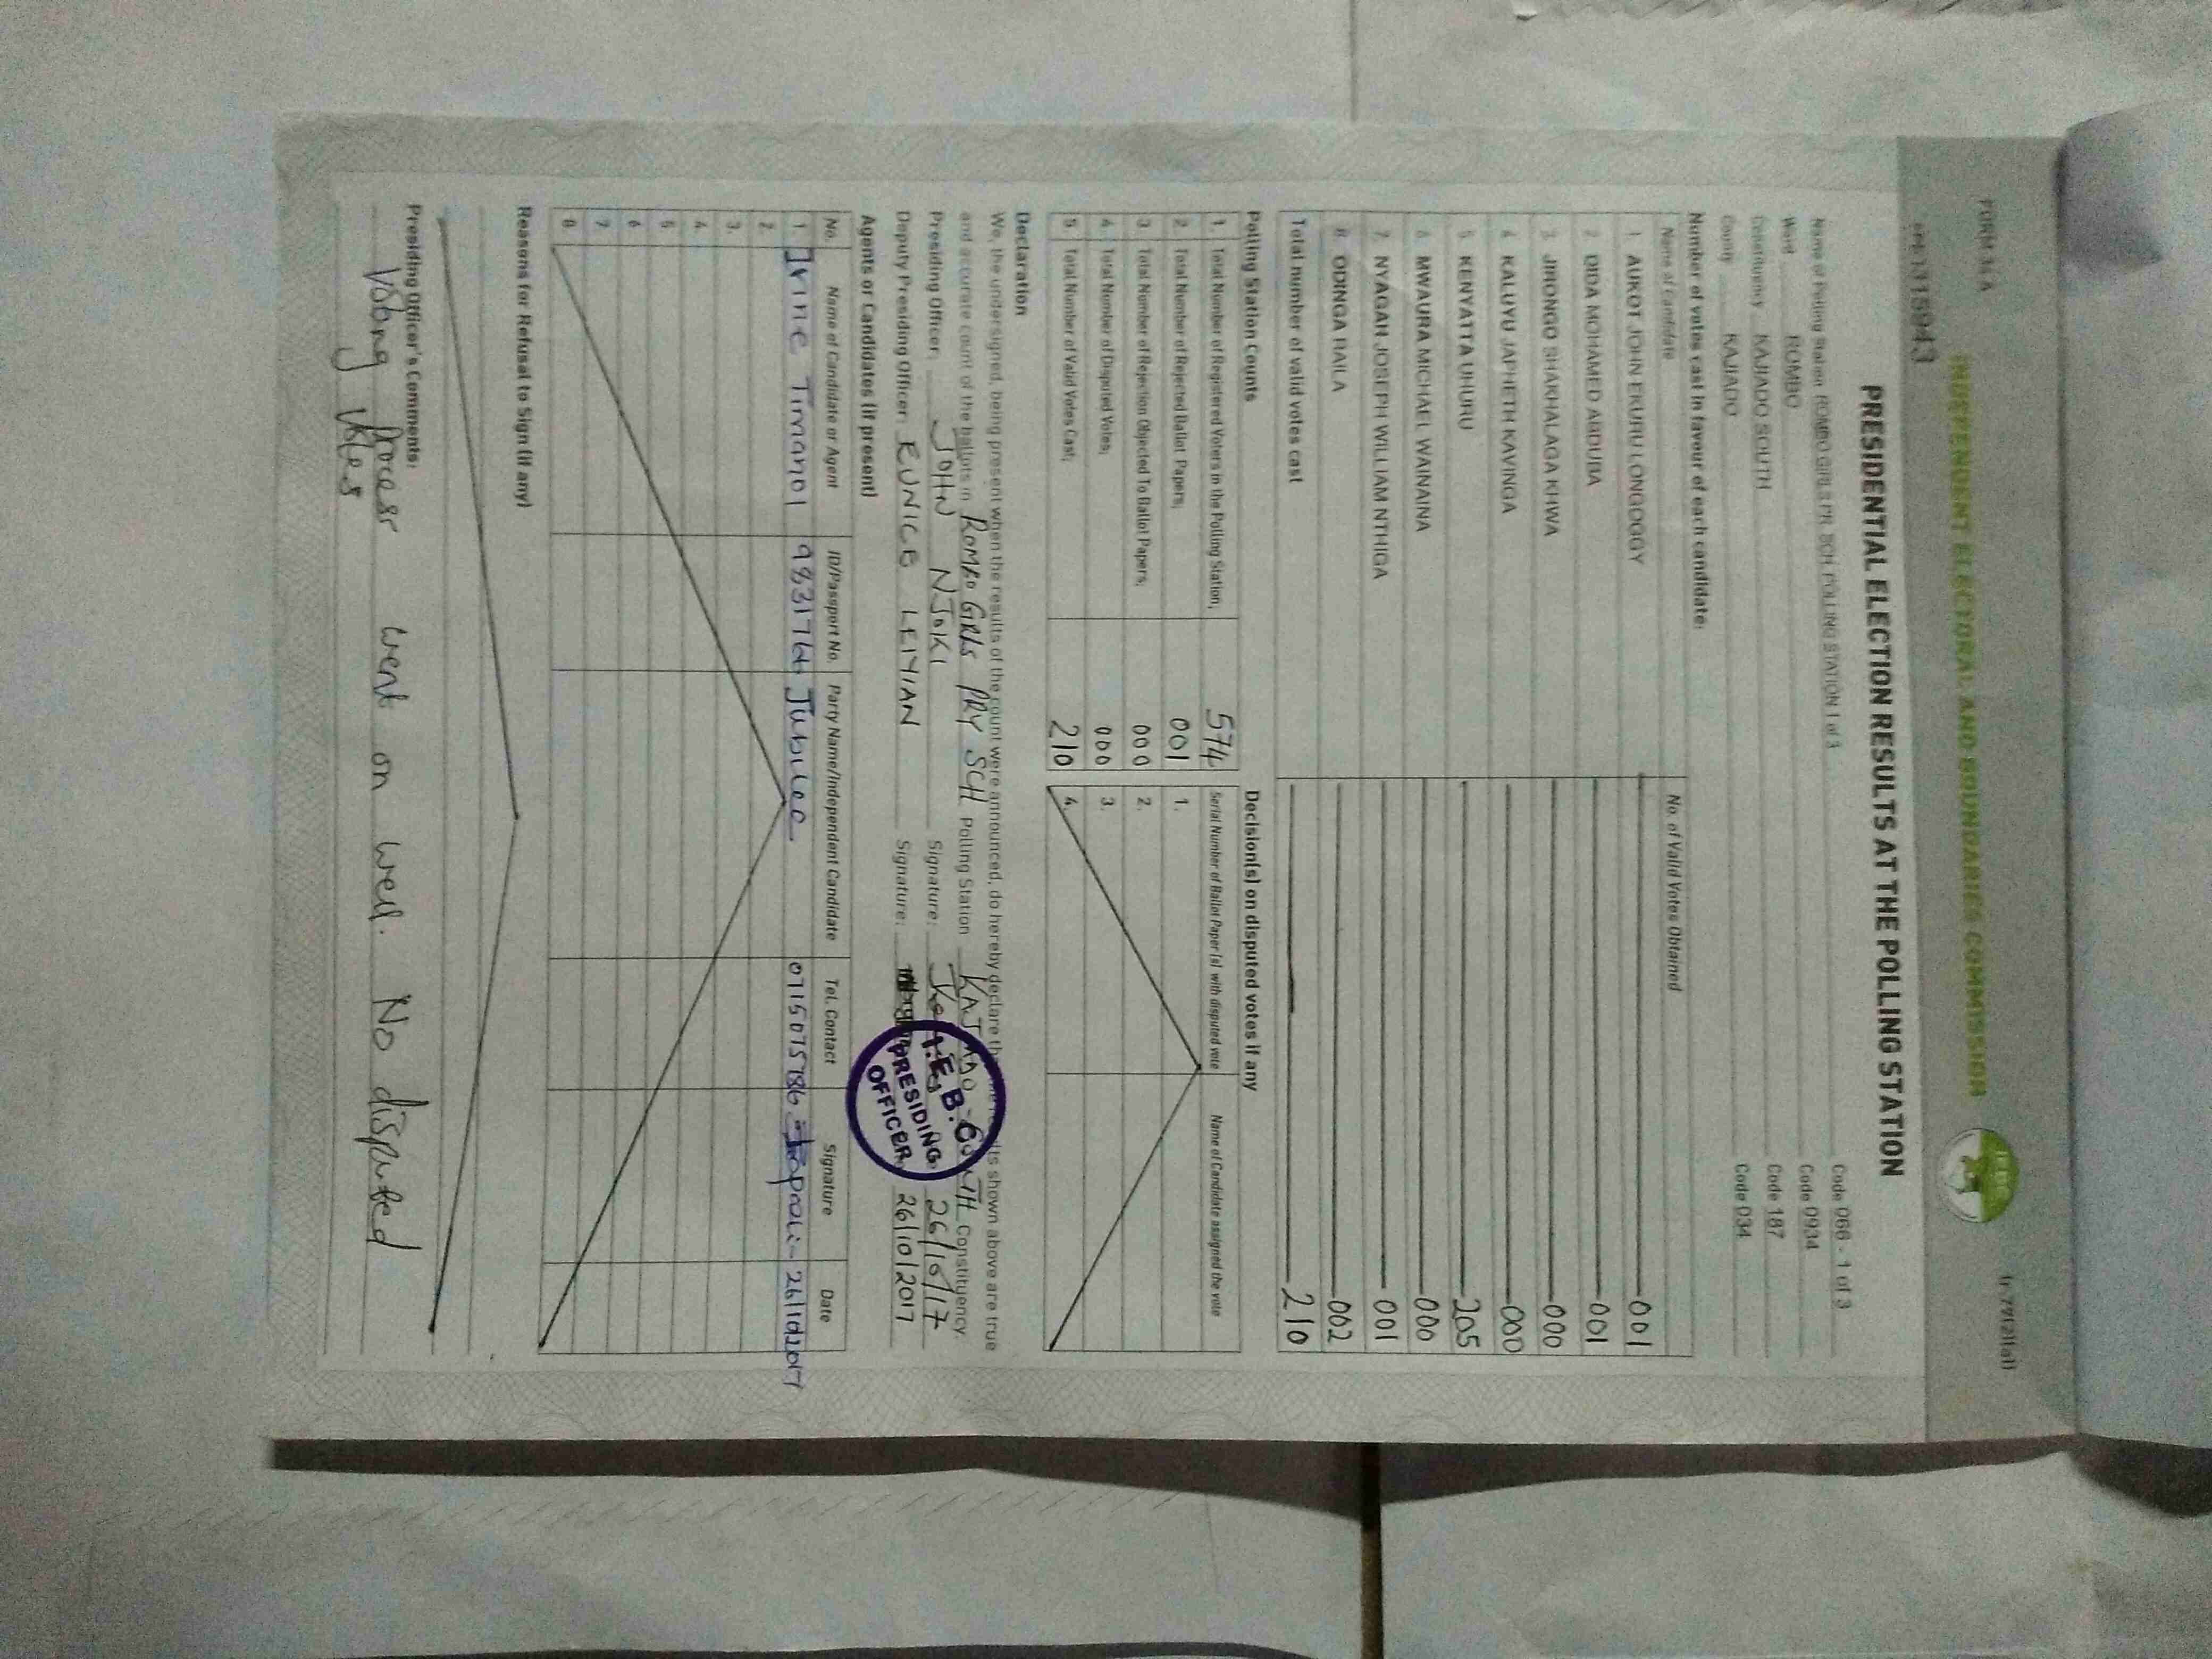 FORM 34A
INDEPENDENT ELECTORAL AND BOUNDARIES COMMISSION
PRESIDENTIAL ELECTION RESULTS AT THE POLLING STATION
Name of Polling Station ROMBO GIRLS PR. SCH POLLING STATION 1 of 3 Code 066 - 1 of 3
Ward ROMBO Code 0934
Constituency KAJIADO SOUTH Code 187
County KAJIADO Code 034
Number of votes cast in favour of each candidate:
Name of Candidate No. of Valid Votes Obtained
1. AUKOT JOHN EKURU LONGOGGY 001
2. DIDA MOHAMED ABDUBA 001
3. JIRONGO SHAKHALAGA KHWA 000
4. KALUYU JAPHETH KAVINGA 000
5. KENYATTA UHURU 205
6. MWAURA MICHAEL WAINAINA 000
7. NYAGAH JOSEPH WILLIAM NTHIGA 001
8. ODINGA RAILA 002
Total number of valid votes cast 210
Polling Station Counts Decision(s) on disputed votes if any
1. Total Number of Registered Voters in the Polling Station; 574 Serial Number of Ballot Paper (s) with disputed vote Name of Candidate assigned the vote
2. Total Number of Rejected Ballot Papers; 001 1.
3. Total Number of Rejection Objected To Ballot Papers; 000 2.
4. Total Number of Disputed Votes; 000 3.
5. Total Number of Valid Votes Cast; 210 4.
Declaration
We, the undersigned, being present when the results of the count were announced, do hereby declare shown above are true
and accurate count of the ballots in ROMBO GIRLS PRY SCH Polling Station KAJIADO SOUTH Constituency.
Presiding Officer: JOHN NJOKI Signature: 26/10/17
Deputy Presiding Officer: EUNICE LEIYIAN Signature: 26/10/2017
I.E.B.C
PRESIDING
OFFICER
Agents or Candidates (if present)
No. Name of Candidate or Agent ID/Passport No. Party Name/Independent Candidate Tel. Contact Signature Date
1. Irine Timanoi Jubilee 26/10/2017
2.
3.
4.
5.
6.
7.
8.
Reasons for Refusal to Sign (if any)
Presiding Officer's Comments:
Voting process went on well. No disputed
votes